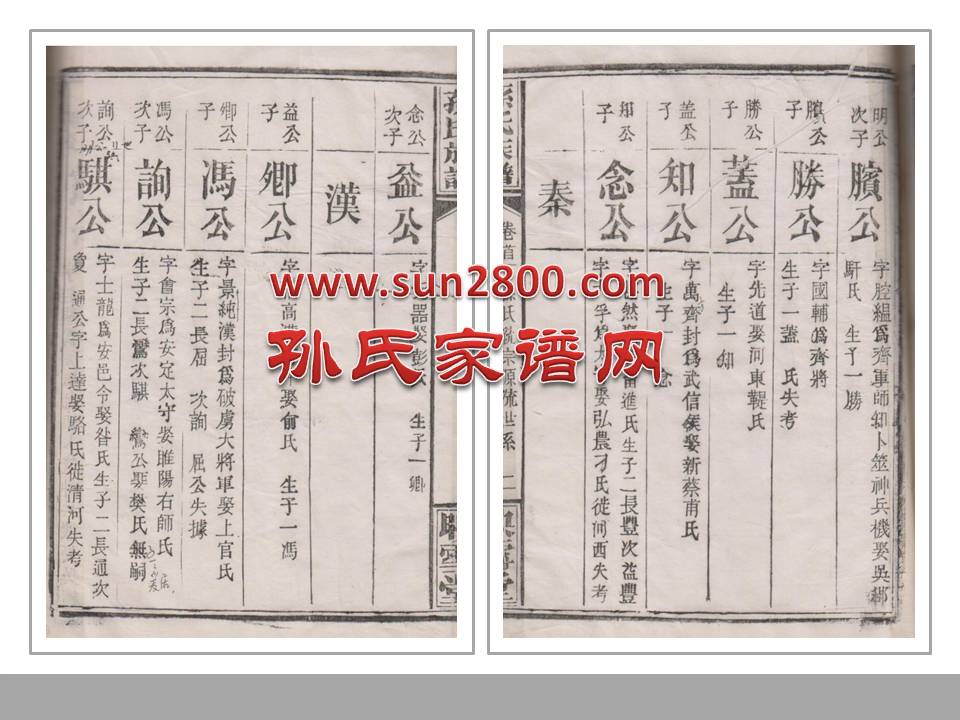 明公次子
臏公
字腔緼爲齊軍師知卜筮神兵機娶吳
馯氏 生子一勝
臏公子
勝公
字國輔爲齊將
生子一蓋 氏失考
勝公子
蓋公
字先道娶河東鞮氏
生子一知
蓋公子
知公
字萬齊封爲武信侯娶新蔡甫氏
生子一念
知公子
念公
進氏生子二長豐次益豐
娶弘農刁氏徙河西失考
秦
孫氏族譜
卷首
氏
宗源流世系
二
映雪堂
念公次子
益公
字器娶彭
生子一卿
漢
益公子
卿公
字高
娶俞氏 生子一馮
卿公子
馮公
字景純漢封爲破虜大將軍娶上官氏
生子二長屈 次詢 屈公失據
馮公次子
詢公
字會宗爲安定太守娶睢陽右師氏
生子二長鸞次騏 鸞公娶樊氏無嗣
詢公次子
騏公
字士龍爲安邑令娶昝氏生子二長通次
夐 通公字上達娶駱氏徙清河失考
www.sun2800.com
孙氏家谱网